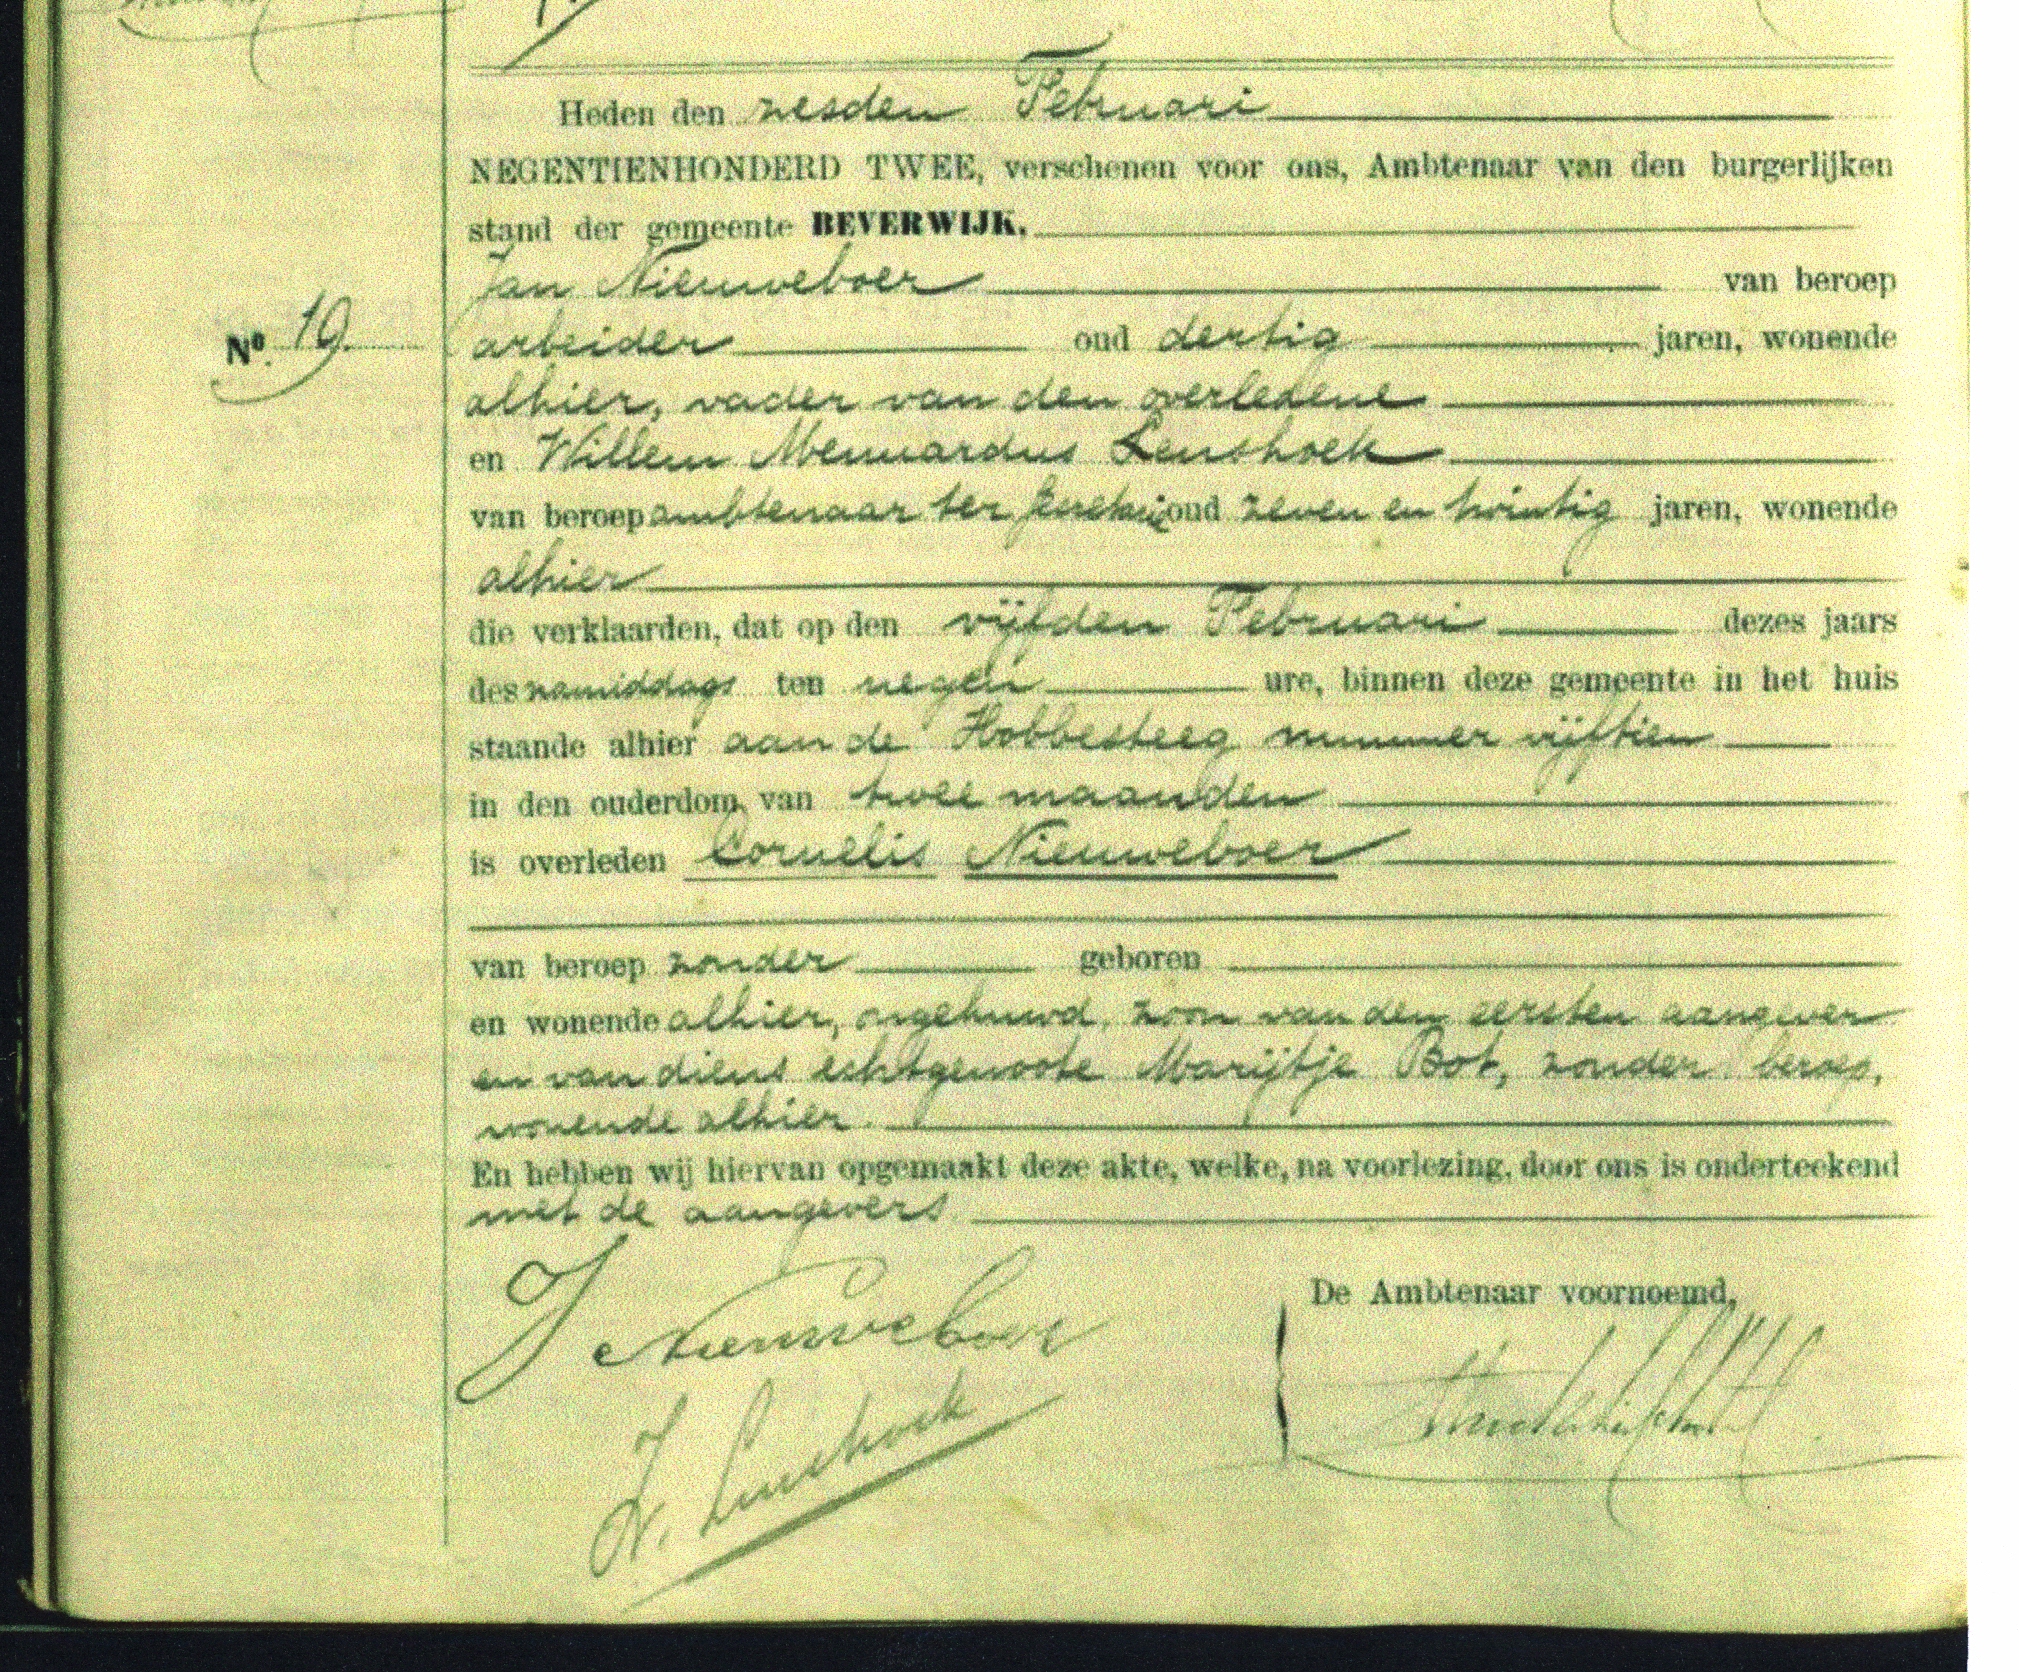 Heden den zesden Februari
NEGENTIENHONDERD TWEE, verschenen voor ons, Ambtenaar van den burgerlijken
stand der gemeente BEVERWIJK,
Jan Nieuweboer van beroep
No. 19. arbeider oud dertig jaren, wonende
alhier, vader van den overledene
en Willem Mennardus Lenshoek
van beroep ambtenaar ter secretarie oud zeven en twintig jaren, wonende
alhier
die verklaarden, dat op den vijfden Februari dezes jaars
des namiddags ten negen ure, binnen deze gemeente in het huis
staande alhier aan de Hobbesteeg nummer vijftien
in den ouderdom van twee maanden
is overleden Cornelis Nieuweboer
van beroep zonder geboren
en wonende alhier, ongehuwd, zoon van den eersten aangever
en van diens echtgenoote Marijtje Bot, zonder beroep,
wonende alhier.
En hebben wij hiervan opgemaakt deze akte, welke, na voorlezing, door ons is onderteekend
met de aangevers.
J Nieuweboer
De Ambtenaar voornoemd,
W. Lenshoek